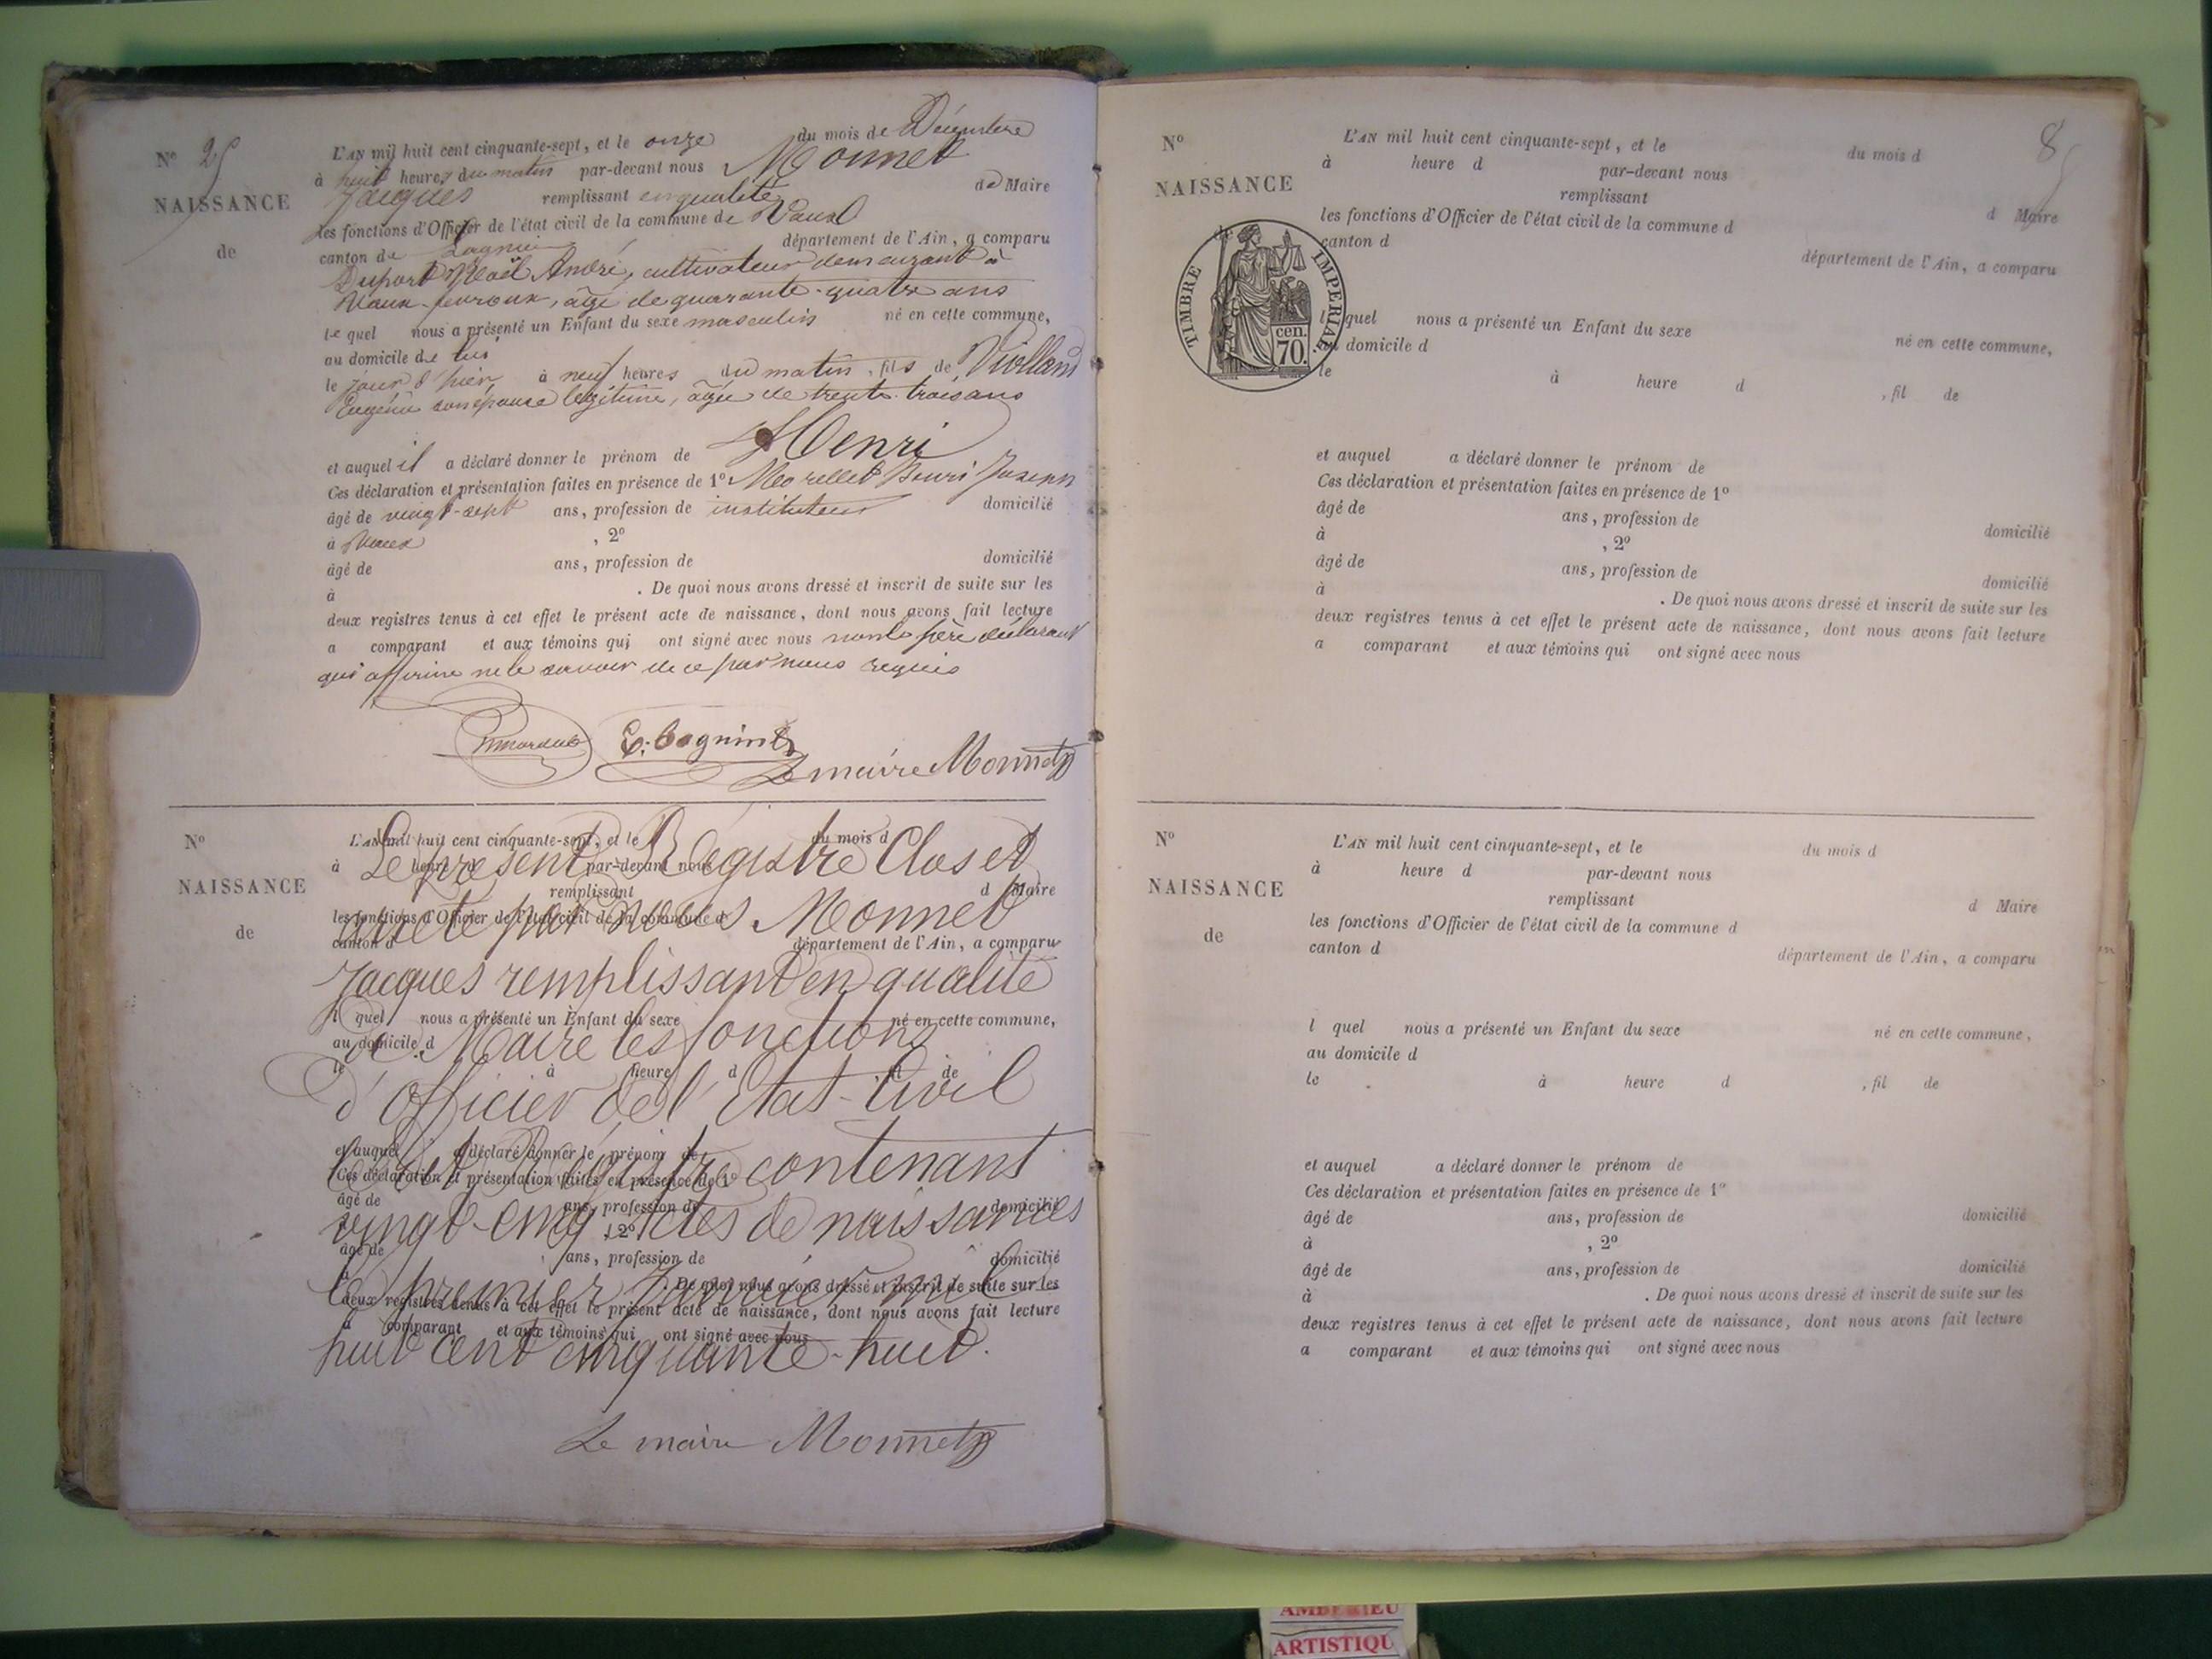 N° 25
NAISSANCE
de
L'AN mil huit cent cinquante-sept, et le onze du mois de Décembre
à huit heures du matin par-devant nous Monnet
Jacques remplissant en qualité de Maire
les fonctions d'Officier de l'état civil de la commune de Vaux
canton de Lagnieu département de l'Ain, a comparu
Duport Noël André, cultivateur demeurant à
Vaux-fevroux, âgé de quarante-quatre ans
le quel nous a présenté un Enfant du sexe masculin né en cette commune,
au domicile de lui
le jour d'hier à neuf heures du matin, fils de Violland
Eugénie son épouse légitime, âgée de trente-trois ans
et auquel il a déclaré donner le prénom de Henri
Ces déclaration et présentation faites en présence de 1° Joseph
âgé de vingt-sept ans, profession de instituteur domicilié
à Vaux , 2°
âgé de ans, profession de domicilié
à . De quoi nous avons dressé et inscrit de suite sur les
deux registres tenus à cet effet le présent acte de naissance, dont nous avons fait lecture
a comparant et aux témoins qui ont signé avec nous non le père déclarant
qui affirme ne le savoir de ce par nous requis
Le maire Monnet
N°
NAISSANCE
de
L'AN mil huit cent cinquante-sept, et le du mois d
à heure d par-devant nous
remplissant d Maire
les fonctions d'Officier de l'état civil de la commune d
canton d département de l'Ain, a comparu
l quel nous a présenté un Enfant du sexe né en cette commune,
au domicile d
le à heure d , fil de
et auquel a déclaré donner le prénom de
Ces déclaration et présentation faites en présence de 1°
âgé de ans, profession de domicilié
à , 2°
âgé de ans, profession de domicilié
à . De quoi nous avons dressé et inscrit de suite sur les
deux registres tenus à cet effet le présent acte de naissance, dont nous avons fait lecture
a comparant et aux témoins qui ont signé avec nous
Le présent Régistre Clos et
arreté par nous Monnet
Jacques remplissant en qualité
de Maire les fonctions
d'Officier de l'Etat-Civil
Régistre contenant
vingt-cinq Actes de naissances
le premier Janvier mil
huit cent cinquante-huit.
Le maire Monnet
8
N°
NAISSANCE
de
L'AN mil huit cent cinquante-sept, et le du mois d
à heure d par-devant nous
remplissant d Maire
les fonctions d'Officier de l'état civil de la commune d
canton d département de l'Ain, a comparu
TIMBRE IMPERIAL
cen.
70.
l quel nous a présenté un Enfant du sexe né en cette commune,
au domicile d
le à heure d , fil de
et auquel a déclaré donner le prénom de
Ces déclaration et présentation faites en présence de 1°
âgé de ans, profession de domicilié
à , 2°
âgé de ans, profession de domicilié
à . De quoi nous avons dressé et inscrit de suite sur les
deux registres tenus à cet effet le présent acte de naissance, dont nous avons fait lecture
a comparant et aux témoins qui ont signé avec nous
N°
NAISSANCE
de
L'AN mil huit cent cinquante-sept, et le du mois d
à heure d par-devant nous
remplissant d Maire
les fonctions d'Officier de l'état civil de la commune d
canton d département de l'Ain, a comparu
l quel nous a présenté un Enfant du sexe né en cette commune,
au domicile d
le à heure d , fil de
et auquel a déclaré donner le prénom de
Ces déclaration et présentation faites en présence de 1°
âgé de ans, profession de domicilié
à , 2°
âgé de ans, profession de domicilié
à . De quoi nous avons dressé et inscrit de suite sur les
deux registres tenus à cet effet le présent acte de naissance, dont nous avons fait lecture
a comparant et aux témoins qui ont signé avec nous
AMBERIEU
ARTISTIQU